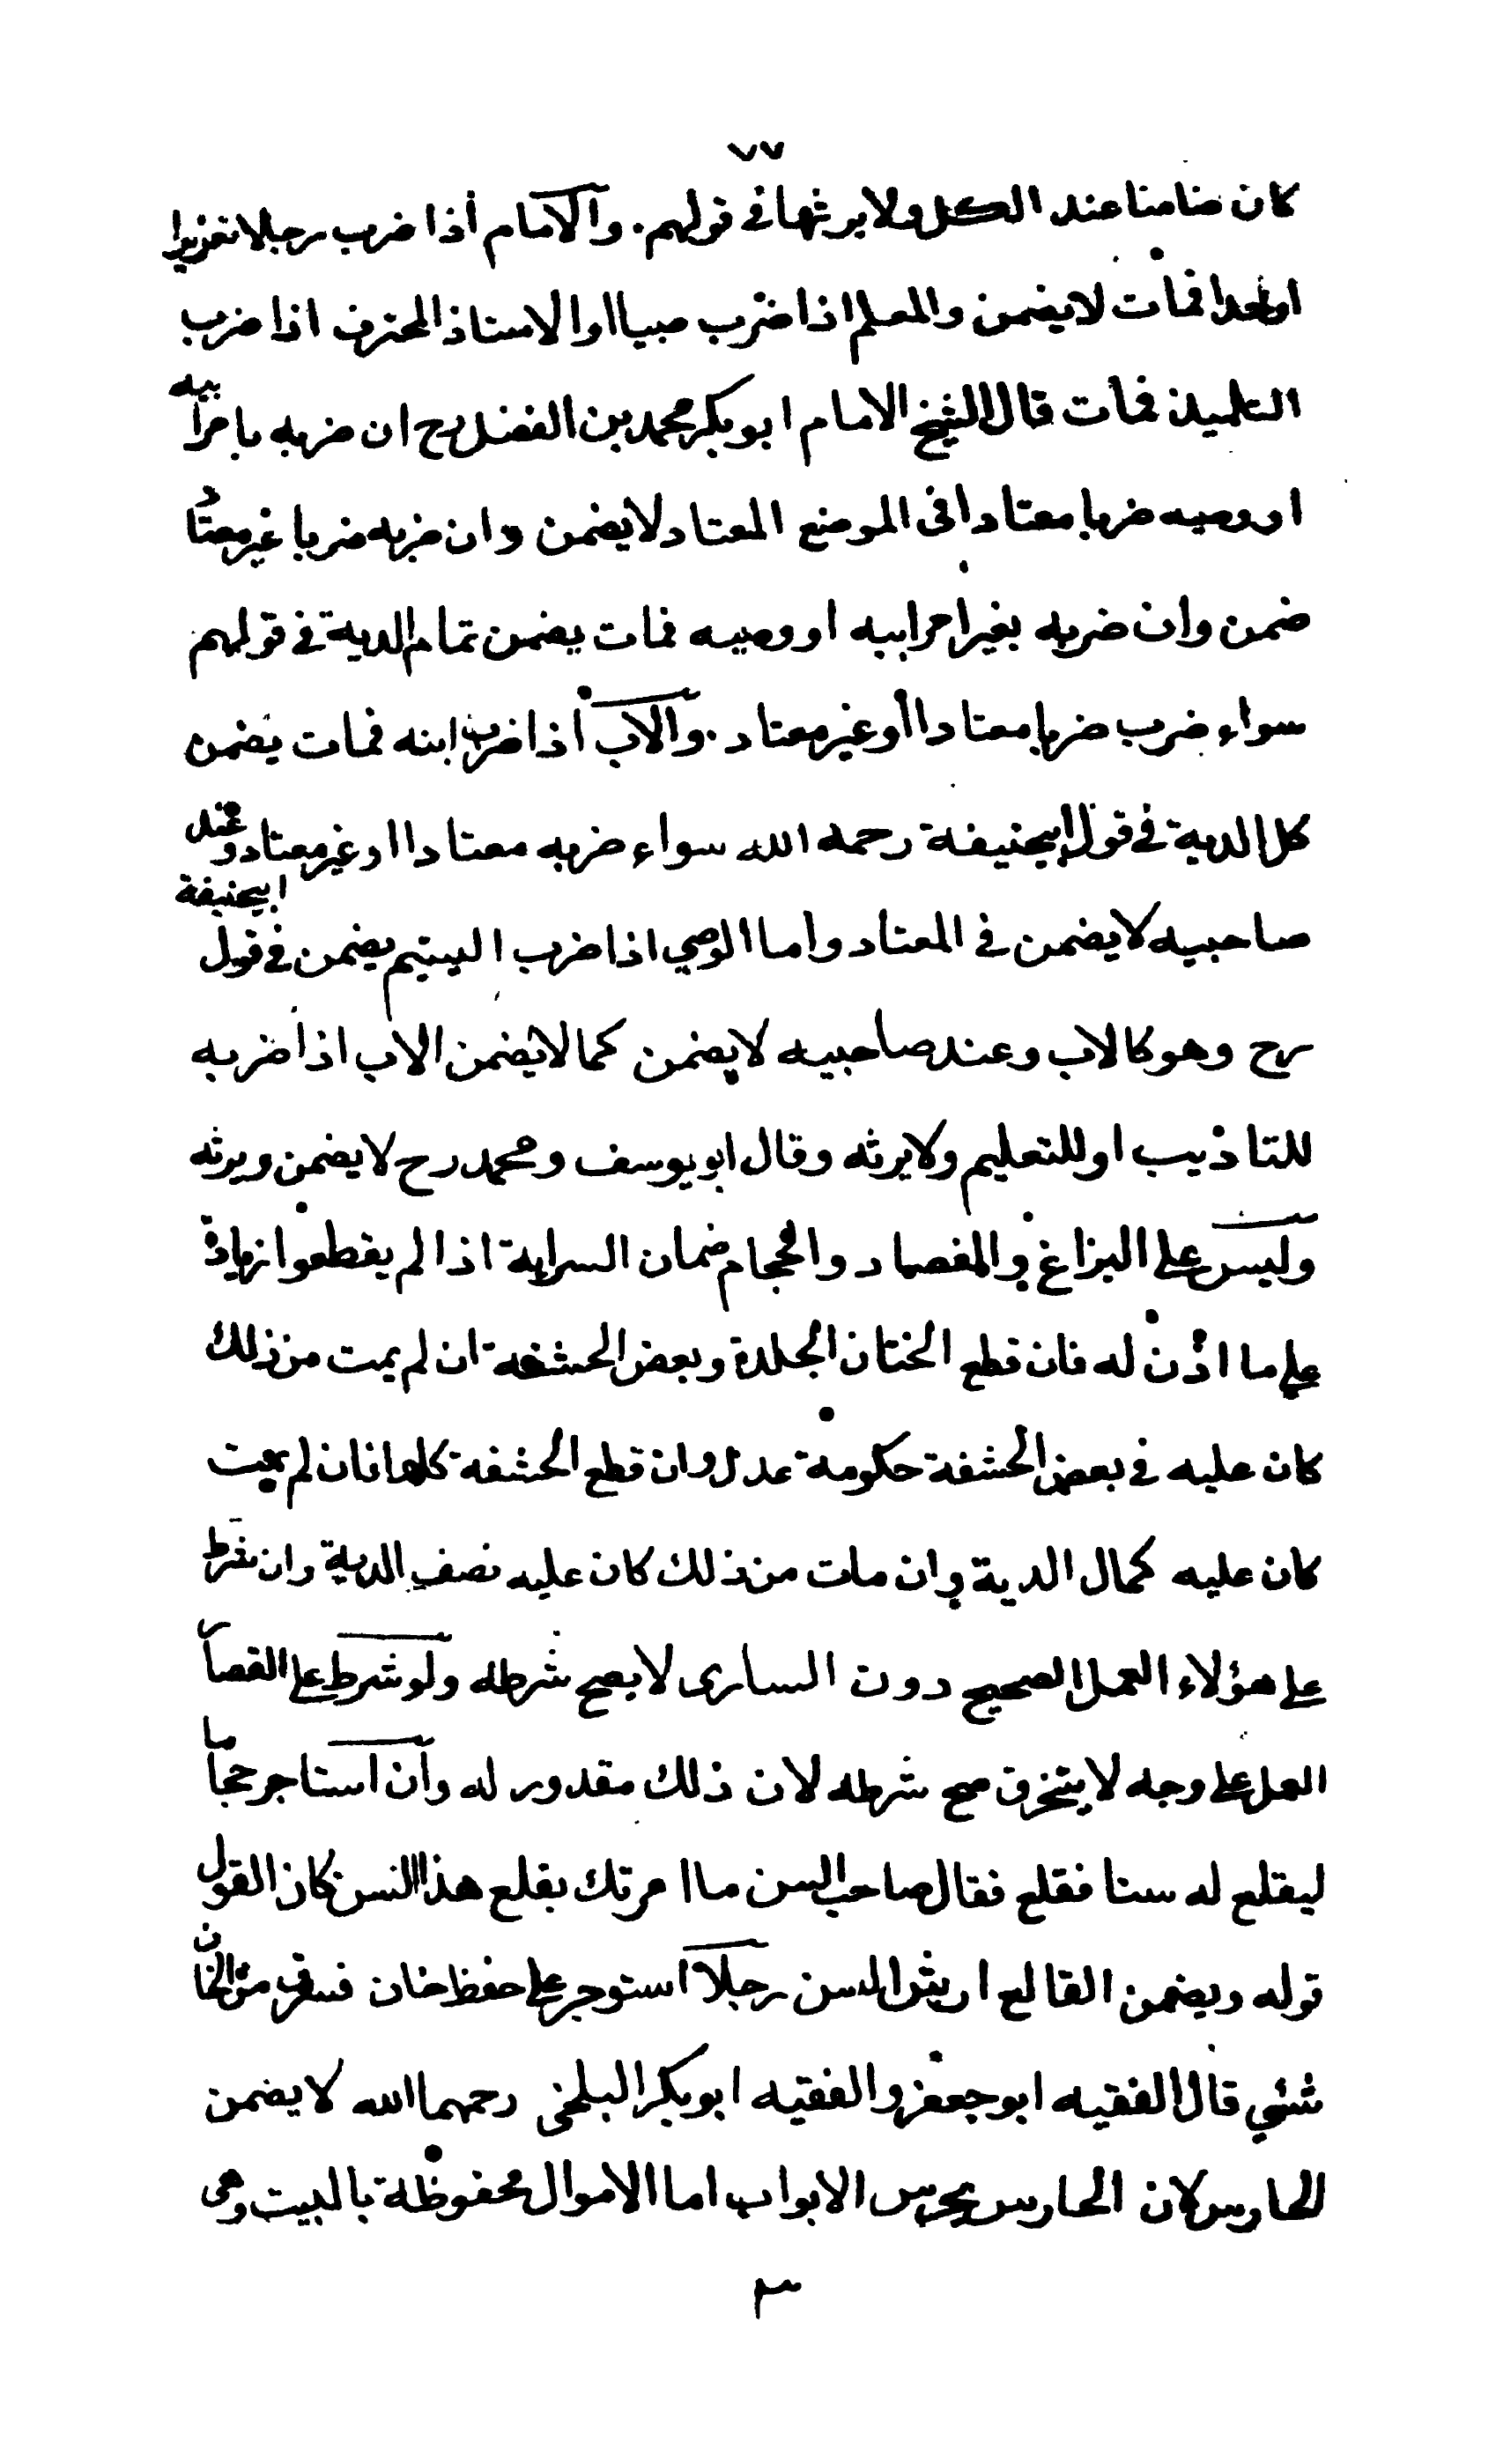 ٧٧
كان ضامنا عند الكل ولا يرثها في قولهم . والامام اذا ضرب رجلا تعزيرا
او لحدا فمات لا يضمن والمعلم اذا ضرب صبيا او الاستاذ المحترف اذا ضرب
التلميذ فمات قال الشيخ الامام ابو بكر محمد بن الفضل رح ان ضربه بامر ابيه
او وصيه ضربا معتادا في الموضع المعتاد لا يضمن وان ضربه ضربا غير معتاد
ضمن وان ضربه بغير امر ابيه او وصيه فمات يضمن تمام الدية في قولهم
سواء ضرب ضربا معتادا او غير معتاد . والاب اذا ضرب ابنه فمات يضمن
كل الدية في قول ابيحنيفة رحمه الله سواء ضربه معتادا او غير معتاد وعند
صاحبيه لا يضمن في المعتاد واما الوصي اذا ضرب اليتيم يضمن في قول ابيحنيفة
رح وهو كالاب وعند صاحبيه لا يضمن كما لا يضمن الاب اذا ضربه
للتاديب او للتعليم ولا يرثه وقال ابو يوسف ومحمد رح لا يضمن ويرثه
وليس على البزاغ والفصاد والحجام ضمان السراية اذا لم يقطعوا زيادة
على ما اذن له فان قطع الختان الجلدة وبعض الحشفة ان لم يمت من ذلك
كان عليه في بعض الحشفة حكومة عدل وان قطع الحشفة كلها فان لم يمت
كان عليه كمال الدية وان مات من ذلك كان عليه نصف الدية وان شرط
على هؤلاء العمل الصحيح دون الساري لا يصح شرطه ولو شرط على القصار
العمل على وجه لا يتخرق صح شرطه لان ذلك مقدور له وان استاجر حجاما
ليقلع له سنا فقلع فقال صاحب السن ما امرتك بقلع هذا السن كان القول
قوله ويضمن القالع ارش السن رجلا استوجر على حفظ خان فسرق من الخان
شئي قال الفقيه ابو جعفر والفقيه ابو بكر البلخي رحمهما الله لا يضمن
الحارس لان الحارس يحرس الابواب اما الاموال محفوظة بالبيت وهي